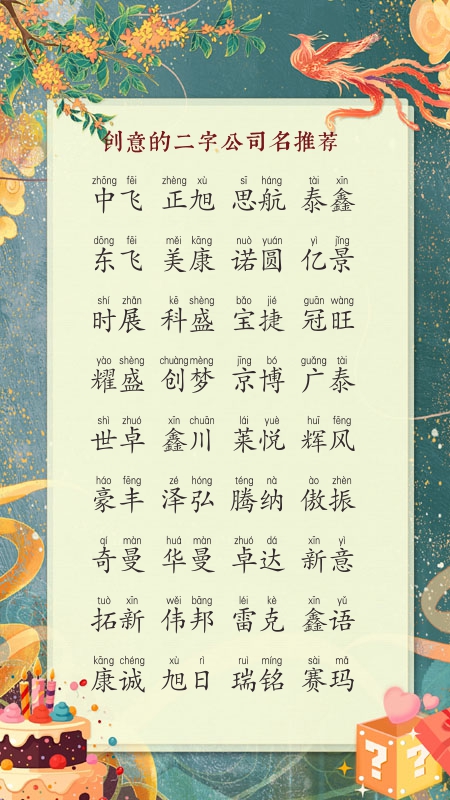 创意的二字公司名推荐
zhōng fēi zhèng xù sī háng tài xīn
中飞 正旭 思航 泰鑫
dōng fēi měi kāng nuò yuán yì jǐng
东飞 美康 诺圆 亿景
shí zhǎn kē shèng bǎo jié guān wàng
时展 科盛 宝捷 冠旺
yào shèng chuàng mèng jīng bó guǎng tài
耀盛 创梦 京博 广泰
shì zhuó xīn chuān lái yuè huī fēng
世卓 鑫川 莱悦 辉风
háo fēng zé hóng téng nà ào zhèn
豪丰 泽弘 腾纳 傲振
qí màn huá màn zhuó dá xīn yì
奇曼 华曼 卓达 新意
tuò xīn wěi bāng léi kè xīn yǔ
拓新 伟邦 雷克 鑫语
kāng chéng xù rì ruì míng sài mǎ
康诚 旭日 瑞铭 赛玛
? ?